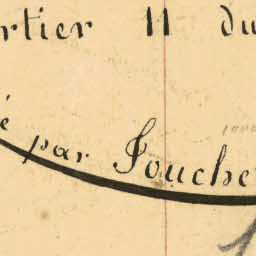 rtier 11 du
é par Jouche